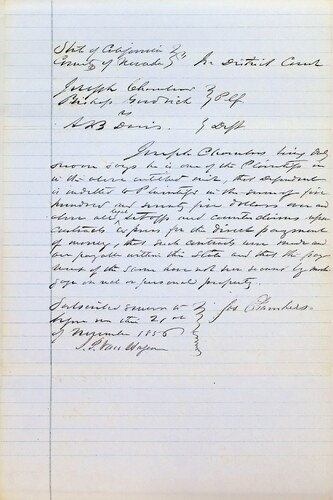 State of California }
County of Nevada } ss In District Court
Joseph Chambers }
Bishop Goodrich } Plf
vs
A B Davis. } Deft
Joseph Chambers being duly
sworn says he is one of the Plaintiffs
in the above entitled suit, that Defendant
is indebted to Plaintiffs in the sum of five
hundred and seventy five dollars over and
above all legal setoffs and counterclaims upon
contracts express for the direct payment
of money, that such contracts were made and
are payable within this State and that the pay
ment of the same have not been secured by mort
gage on real or personal property.
Subscribed & sworn to } Jos Chambers
before me this 21 st }
of November 1856 }